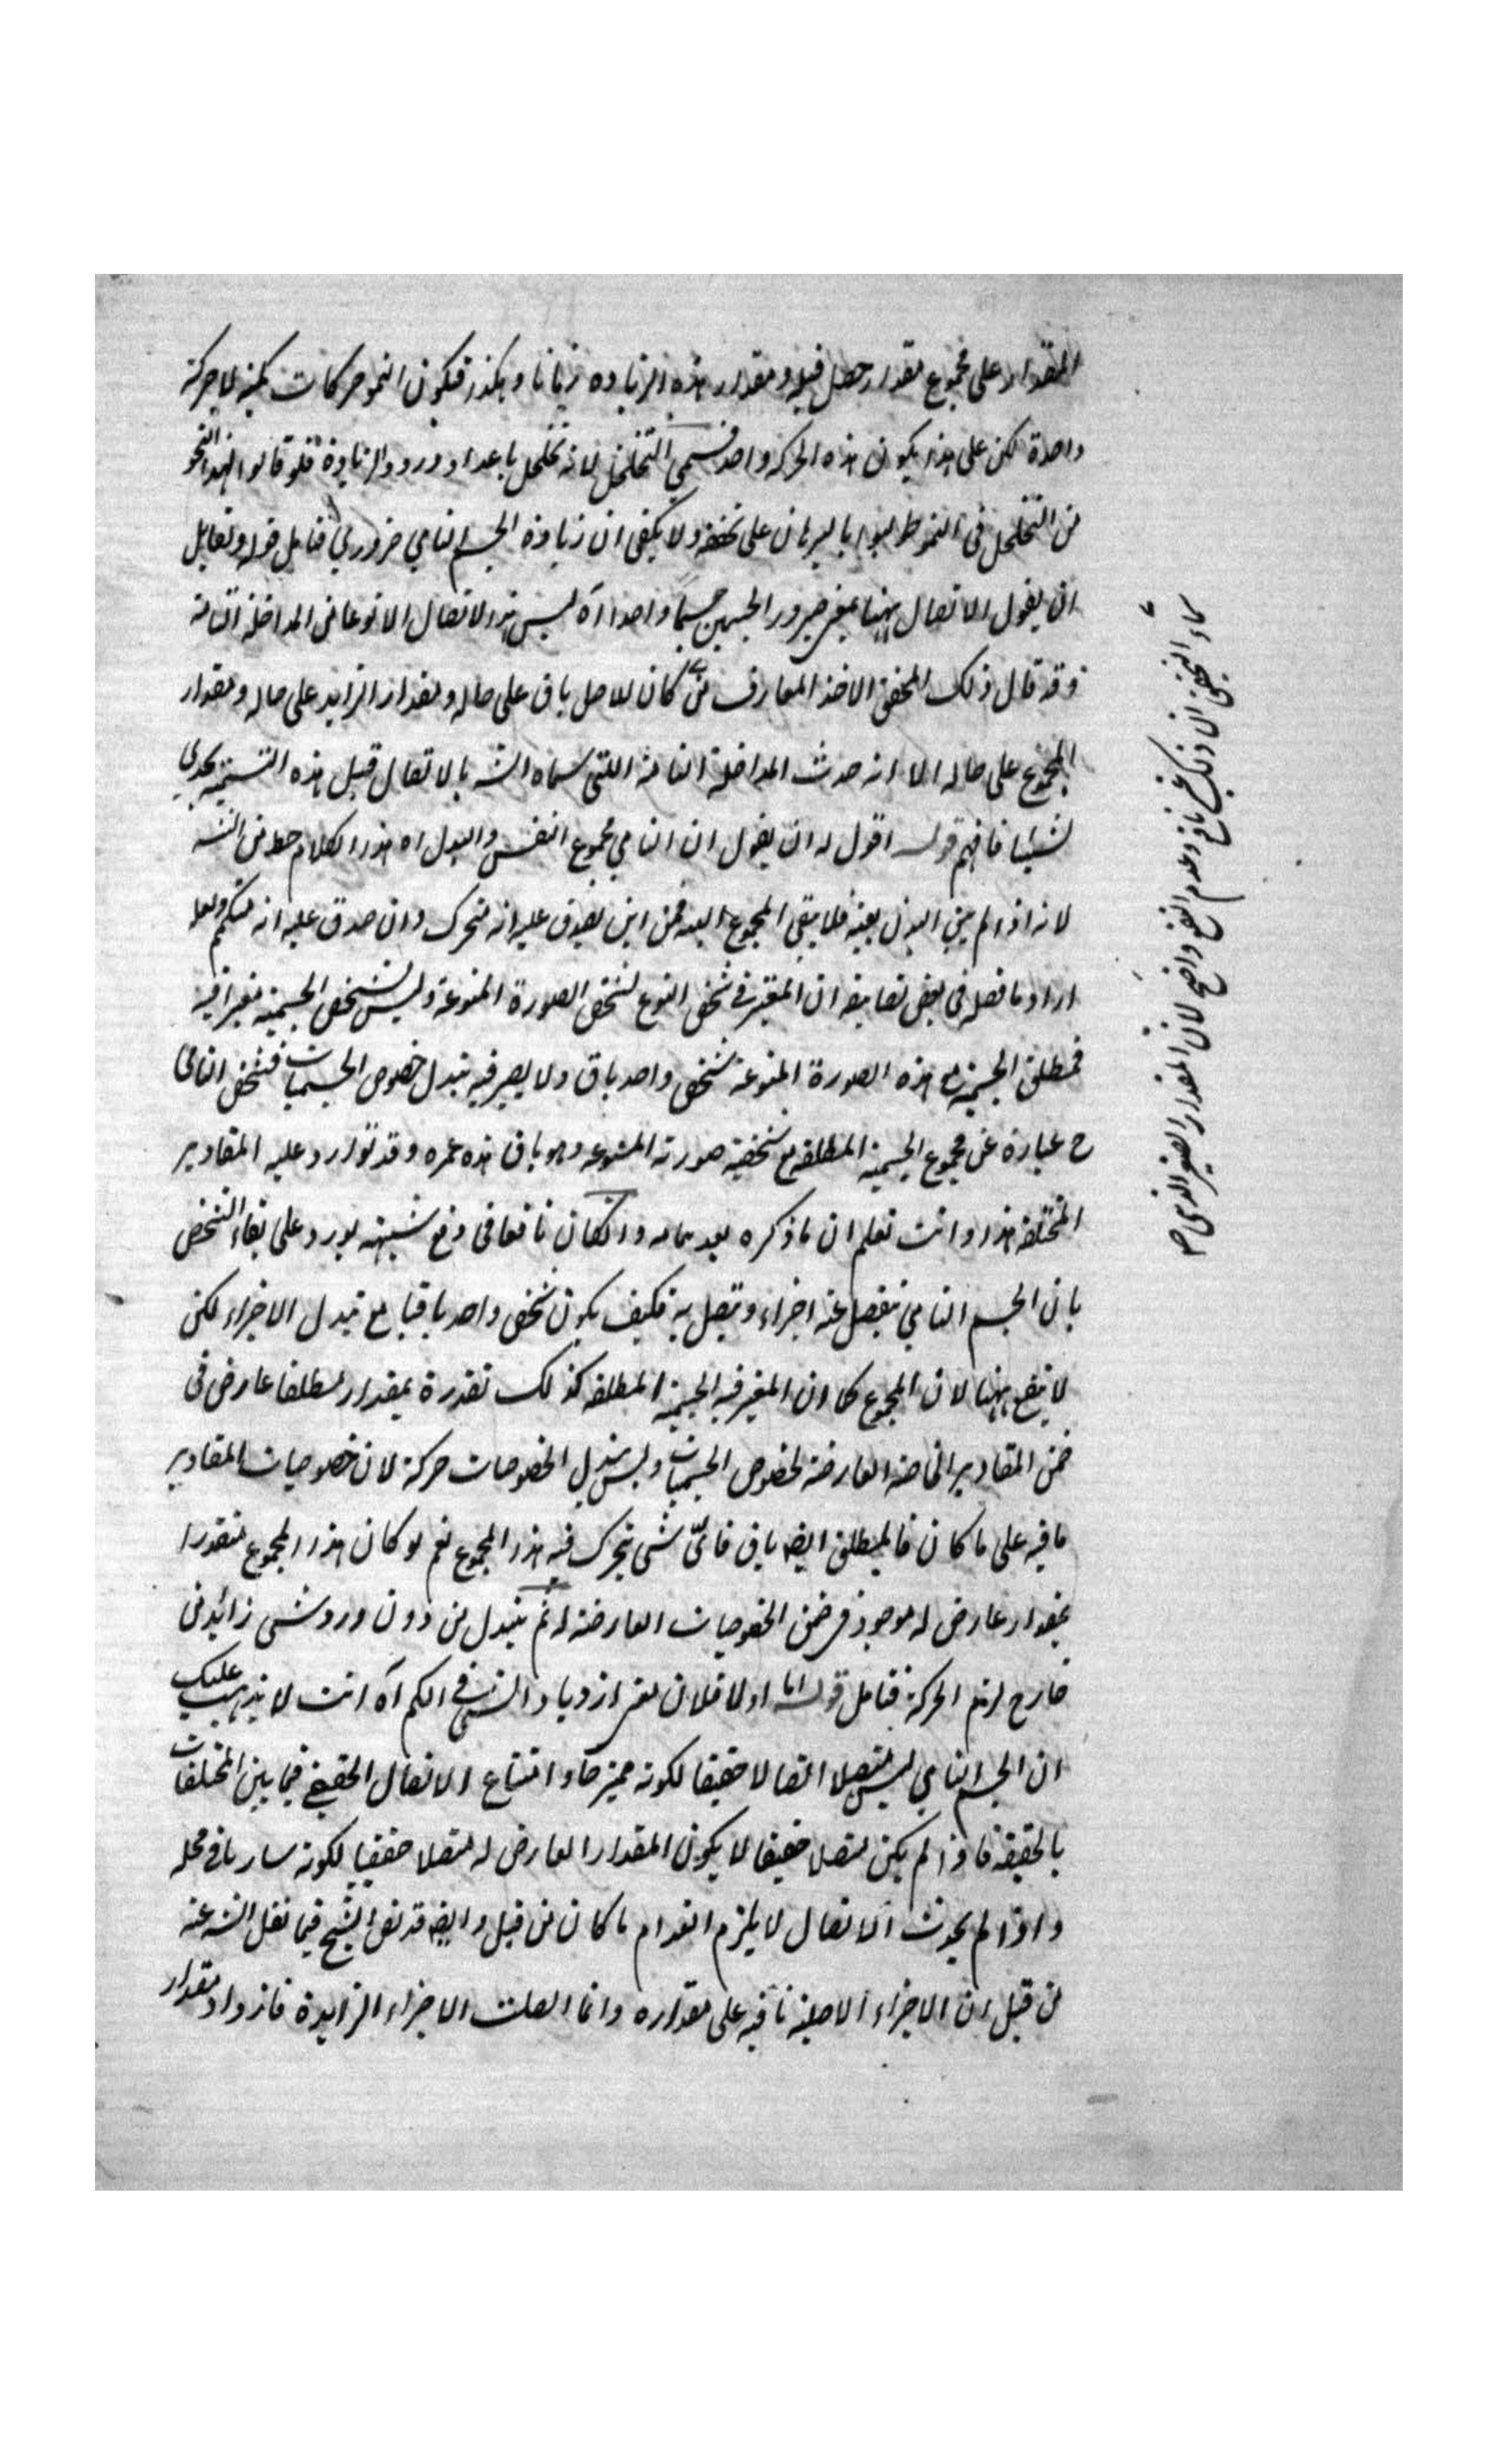 المقدار على مجموع مقدار حصل قبله ومقدار هذه الزيادة زمانا وهكذا فيكون النمو حركات كمية لا حركة
واحدة لكن على هذا يكون هذه الحركة واحد قسمي التخلخل لانه تخلخل باعداد ورود الزيادة فلو قالوا بهذا النحو
من التخلخل في النمو طولبوا بالبرهان على تحققه ولا يكفي ان زيادة الجسم النامي ضروري فتامل قوله ولقايل
ان يقول الاتصال ههنا بمعنى صيرورة الجسمين جسما واحدا اه ليس هذا الاتصال الا نوعا من المداخلة
وقد قال ذلك المحقق الاخذ المعارف كان للاصل باق على حاله ومقدار الزايد على حاله ومقدار
المجموع على حاله الا انه حدث المداخلة التي سماه الش بالاتصال قبل هذه التسمية يجدي
شيئا فافهم قوله اقول له ان يقول ان النامي مجموع النفس والبدل اه هذا الكلام خط من الش
لانه اذا لم يبق البدن بعينه فلا يبقى المجموع البعد فمن اين يصدق عليه انه متحرك وان صدق عليه انه متكمم ولعله
اراد ما فصله في بعض تعاليقه ان المعتبر في شخص النوع تشخص الصورة المنوعة وليس تشخص الجسمية معتبرا فيه
فمطلق الجسمية مع هذه الصورة المنوعة شخص واحد باق ولا يضر فيه تبدل خصوص الجسميات فشخص النامي
ح عبارة عن مجموع الجسمية المطلقة مع شخصية صورته المنوعه وهو باق هذه عمره وقد توارد عليه المقادير
المختلفة هذا وانت تعلم ان ما ذكره بعد تمامه وانكان نافعا في دفع شبهة يورد على بقاء الشخص
بان الجسم النامي ينفصل عنه اجزاء ويتصل به فكيف يكون شخص واحد باقيا مع تبدل الاجزاء لكن
لا ينفع ههنا لان المجموع كما ان المعتبر فيه الجسمية المطلقه كذلك تقدره بمقدار مطلقا عارض في
ضمن المقادير الخاصة العارضة لخصوص الجسميات وليس تبدل الخصوصات حركة لان خصوصيات المقادير
ما فيه على ما كان فالمطلق ايضا باق فاي شي يتحرك فيه هذا المجموع نعم لو كان هذا المجموع متقدرا
بمقدار عارض له موجود في ضمن الخصوصيات العارضة له ثم يتبدل من دون ورود شي زائد من
خارج لزم الحركة فتامل قوله اما اولا فلان معنى ازدياد الشي في الكم اه انت لا يذهب عليك
ان الجسم النامي ليس متصلا اتصالا حقيقيا لكونه ممتزجا وامتناع الاتصال الحقيقي فيما بين المختلفات
بالحقيقة فاذا لم يكن متصلا حقيقيا لا يكون المقدار العارض له متصلا حقيقيا لكونه ساريا في محله
واذا لم يحدث الاتصال لا يلزم انعدام ما كان من قبل وايضا قد نص الشيخ فيما نقل الش عنه
من قبل ان الاجزاء الاصلية باقيه على مقداره وانما اتصلت الاجزاء الزايدة فازداد مقدار
بقاء الشخص ان ذلك غير نافع وعدم النفع واضح لان المقدار الصغير الذي